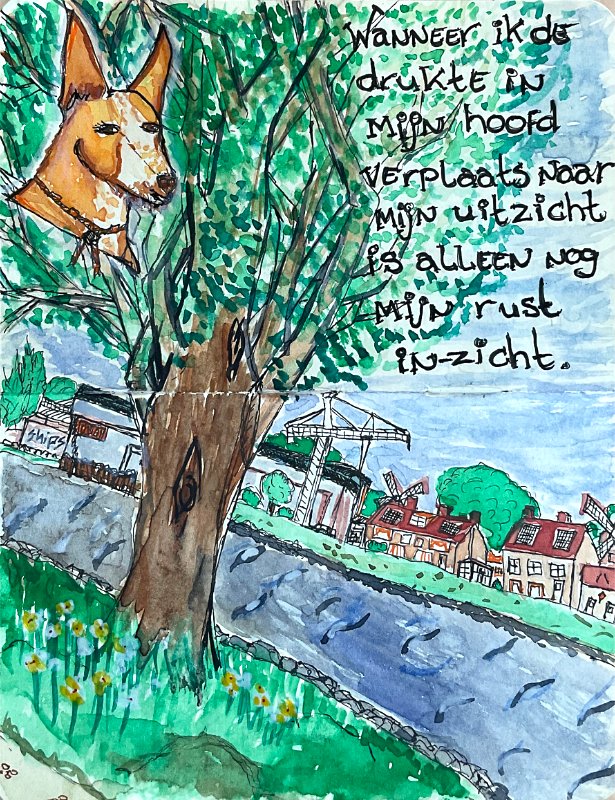 Wanneer ik de
drukte in
mijn hoofd
verplaats naar
mijn uitzicht
is alleen nog
mijn rust
in-zicht.
ships